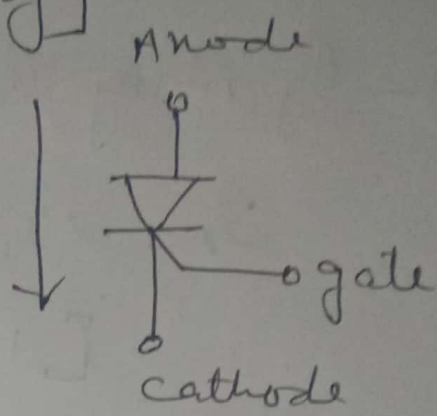 Anode
gate
Cathode